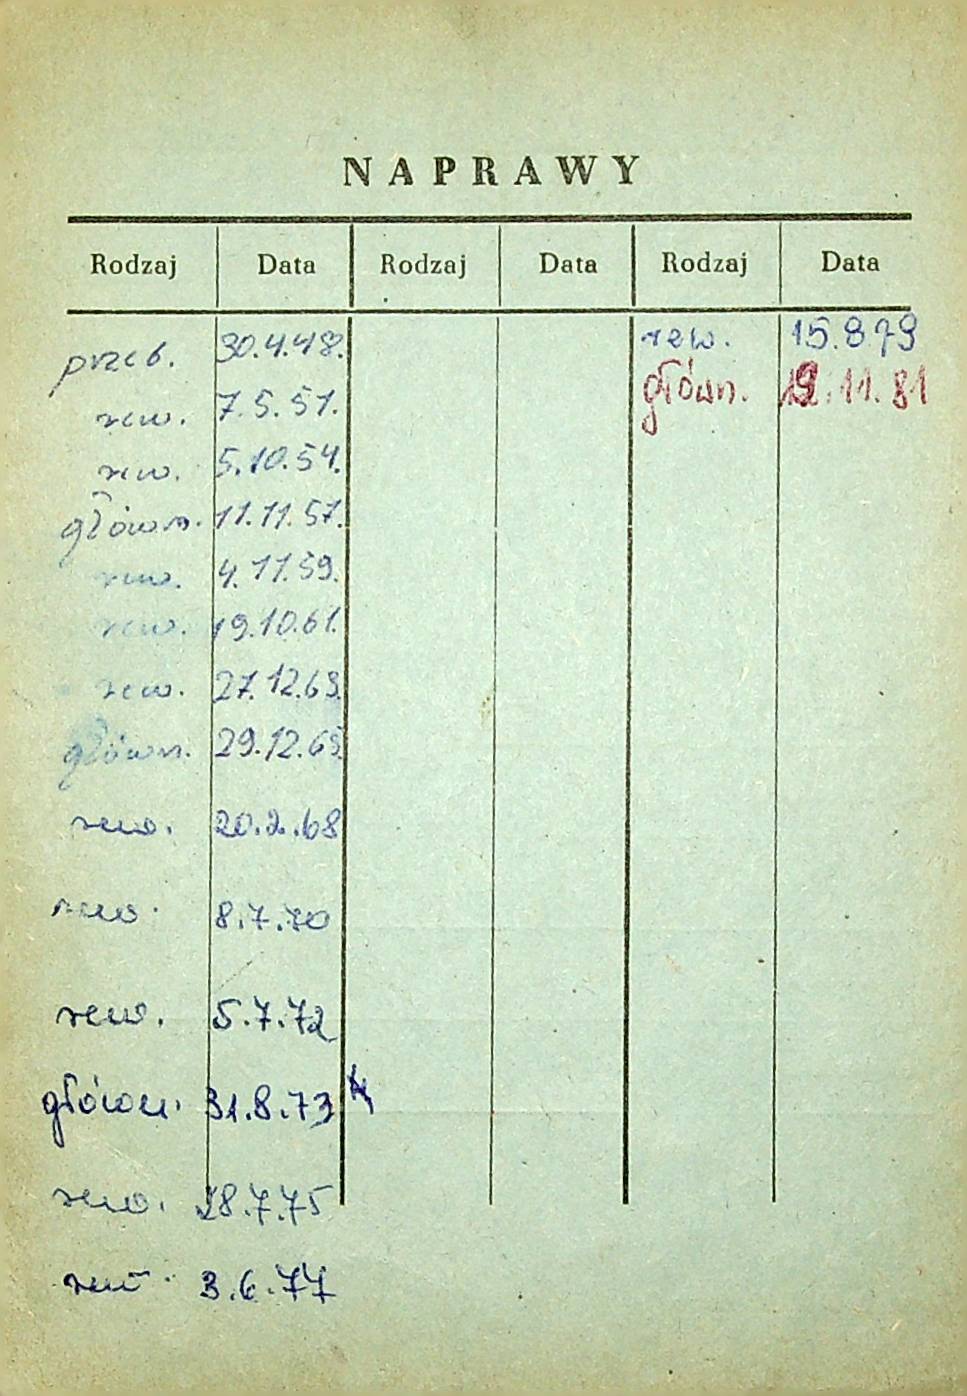 NAPRAWY
Rodzaj Data Rodzaj Data Rodzaj Data
przeb. 30.4.48. rew. 15.8.79
rew. 7.5.51. główn. 12.11.81
rew. 5.10.54.
główn. 11.11.57.
rew. 4.11.59.
rew. 19.10.61.
rew. 27.12.63.
główn. 29.12.65.
rew. 20.2.68
rew. 8.7.70
rew. 5.7.72
główn. 31.8.73
rew. 28.7.75
rew. 3.6.77